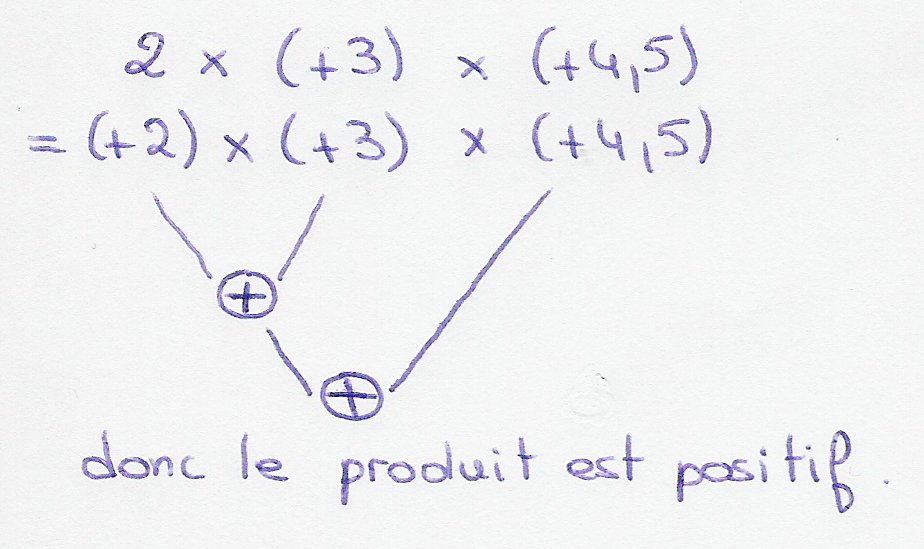 2 × (+3) × (+4,5)
= (+2) × (+3) × (+4,5)
+
+
donc le produit est positif.